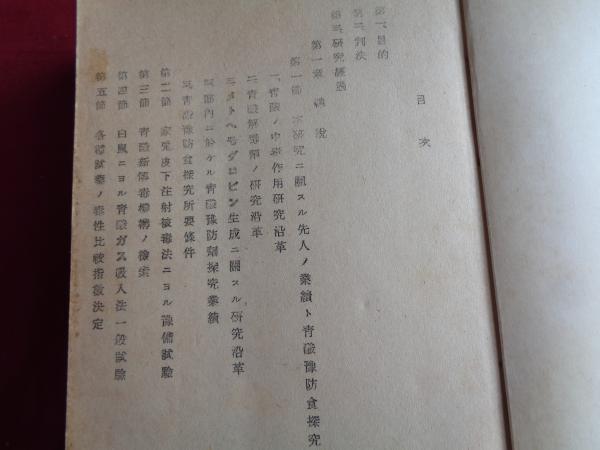 目次
第一、目的
第二、判決
第三、研究経過
第一章 總說
第一節 本研究ニ關スル先人ノ業績ト青酸豫防食探究
一、青酸ノ中毒作用研究沿革
二、青酸解毒劑ノ研究沿革
三、メトヘモグロビン生成ニ關スル研究沿革
部內ニ於ケル青酸豫防劑探究業績
青酸豫防食探究所要條件
第二節 家兎皮下注射被毒法ニヨル豫備試驗
第三節 青酸新解毒機構ノ檢索
第四節 白鼠ニヨル青酸ガス吸入法一般試驗
第五節 各種試藥ノ毒性比較指數決定